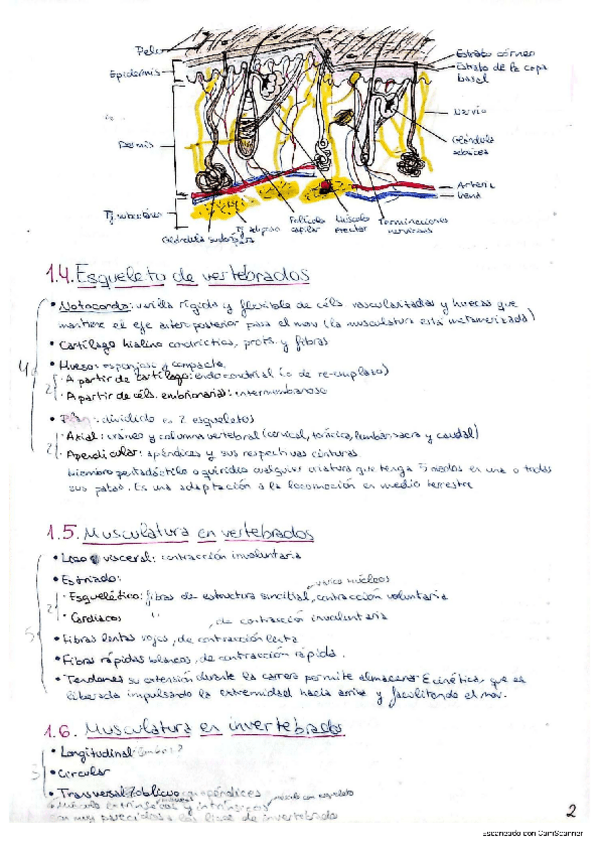 Pelo
Epidermis
Dermis
Tj subcutáneo
Glándula sudorípara
Tj adiposo
Folículo capilar
Músculo erector
Terminaciones nerviosas
Estrato córneo
Estrato de la capa basal
Nervio
Glándula sebácea
Arteria
Vena
1.4. Esqueleto de vertebrados
• Notocorda: varilla rígida y flexible de céls vascularizadas y huecas que
mantiene el eje anteroposterior para el mov (la musculatura está metamerizada)
• Cartílago hialino condrictios, prots. y fibras
4
• Huesos esponjoso y compacto
2
· A partir de cartílago: endocondrial (o de reemplazo)
· A partir de céls. embrionarias: intermembranoso
: dividido es 2 esqueletos
2
· Axial: cráneo y columna vertebral (cervical, torácica, lumbar, sacra y caudal)
· Apendicular: apéndices y sus respectivas cinturas
Miembro pentadáctilo o quiridio cualquier criatura que tenga 5 dedos en una o todas
sus patas. Es una adaptación a la locomoción en medio terrestre
1.5. Musculatura en vertebrados
• Liso o visceral: contracción involuntaria
• Estriado:
varios núcleos
2
· Esquelético: fibras de estructura sincitial, contracción voluntaria
· Cardiacos '' , de contracción involuntaria
5
• Fibras lentas rojas, de contracción lenta
• Fibras rápidas blancas, de contracción rápida.
• Tendones su extensión durante la carrera permite almacenar E cinética, que es
liberada impulsando la extremidad hacia arriba y facilitando el mov.
1.6. Musculatura en invertebrados
• Longitudinal
3
• Circular
• Transversal/oblicuo apéndices
Músculo extrínsecos y intrínsecos
muy parecidos a las lisas de invertebrado
2
Escaneado con CamScanner